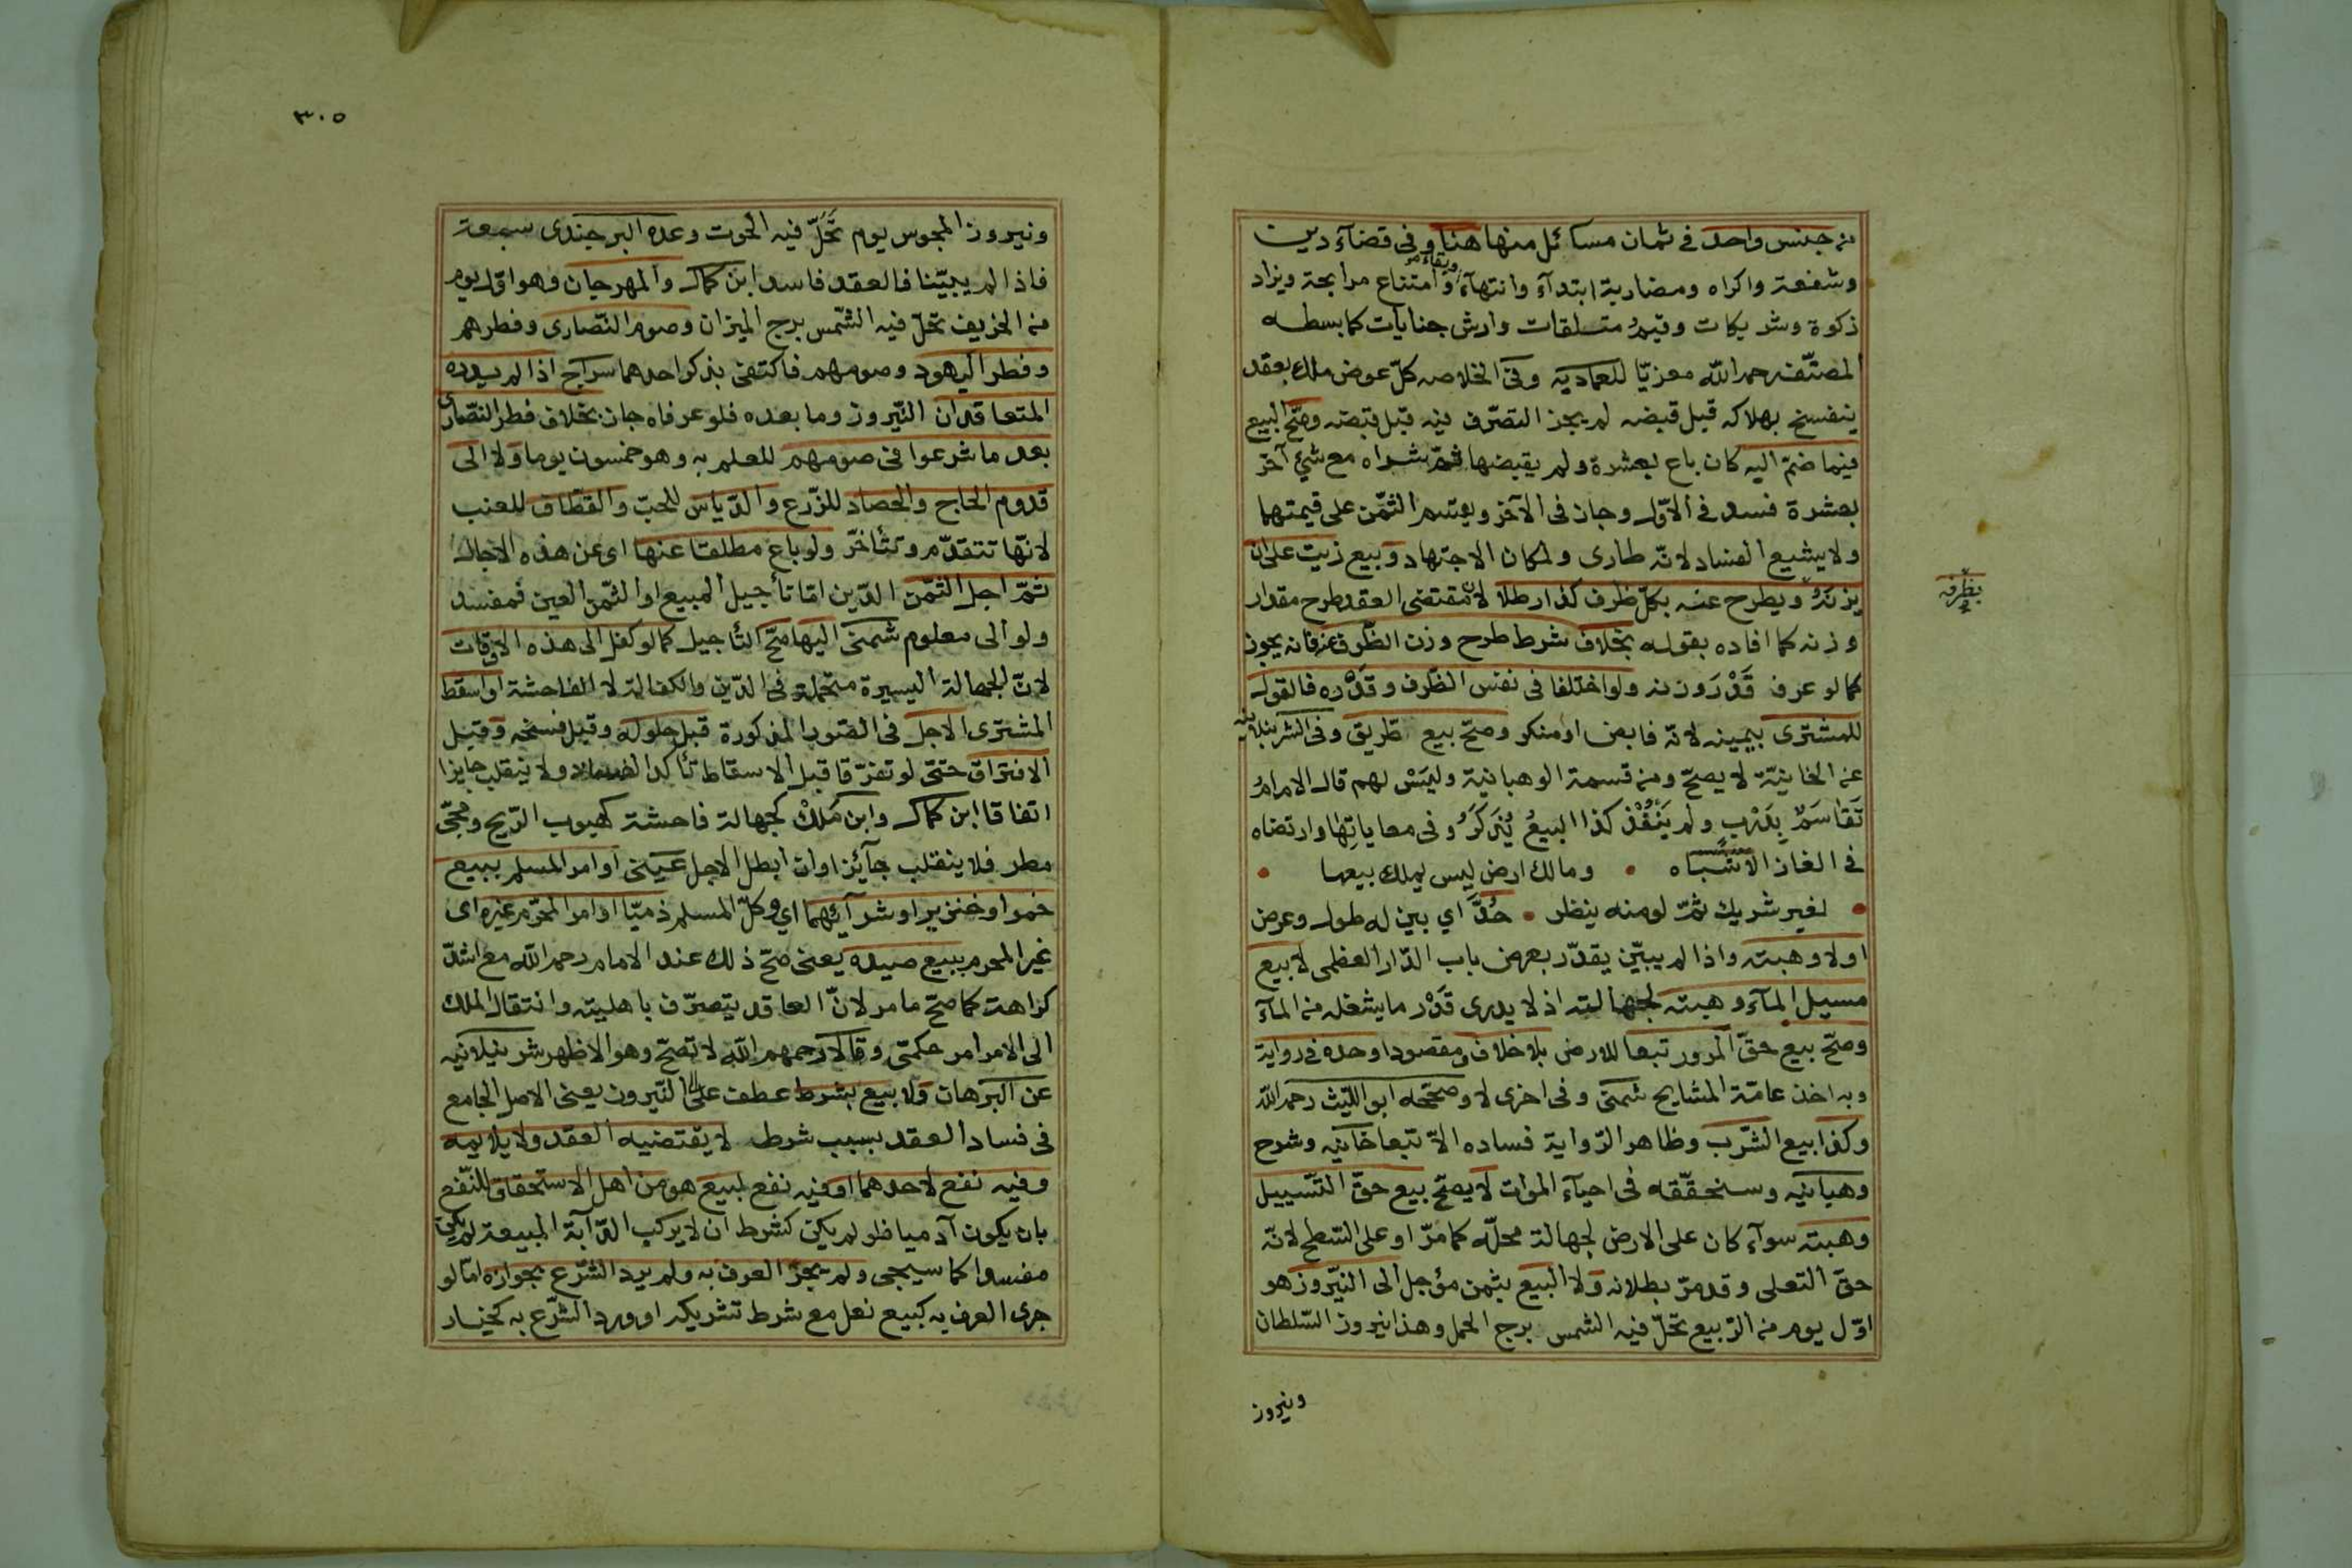 من جنس واحد في ثمان مسائل منها هنا وفي قضاء دين
وشفعة واكراه ومضاربة ابتدآء وانتهآء وبقاء وامتناع مرابحة ويزاد
زكوة وشريكات وقيم متلفات وارش جنايات كما بسطه
المصنّف رحمه اللّه معزيّا للعماديه وفي الخلاصه كلّ عوض ملك بعقد
ينفسخ بهلاكه قبل قبضه لم يجز التصرّف فيه قبل قبضه وصحّ البيع
فيما ضمّ اليه كان باع بعشرة ولم يقبضها ثمّ شراه مع شئ آخر
بعشرة فسد في الاوّل وجاز في الآخر ويقسم الثمن على قيمتهما
ولا يشيع الفساد لانّه طارى ولمكان الاجتهاد وبيع زيت على ان
يزنه ويطرح عنه بكلّ ظرف كذا رطلا لانّ مقتضى العقد طرح مقدار
بظرفه
وزنه كما افاده بقوله بخلاف شرط طرح وزن الظّرف عنه فانه يجوز
كما لو عرف قَدْرَ وزنه ولو اختلفا في نفس الظّرف وقدّره فالقول
للمشترى بيمينه لانّه قابض او منكر وصحّ بيع طريق وفي الشرنبلاليه
عن الخانيّة لا يصحّ ومن قسمة الوهبانية وليَسْ لهم قال الامامُ
تَقَاسَمٌ بِدَرْبٍ ولم يَنْفُذْ كذا البيعُ يُذْكَرُ وفي معاياتِها وارتضاه
في الغاز الاشباه • ومالك ارض ليس يملك بيعها •
• لغير شريك ثمّ لو منه ينظر • حُدَّ اي بين له طول وعرض
اولا وهبته واذا لم يبيّن يقدّر بعرض باب الدّار العظمى لا بيع
مسيل المآء وهبته لجهالته اذ لا يدرى قَدْر ما يشغله من المآء
وصحّ بيع حقّ المرور تبعا للارض بلا خلاف ومقصودا وحده في رواية
وبه اخذ عامّة المشايخ شمنى وفي اخرى لا وصححه ابو اللّيث رحمه اللّه
وكذا بيع الشّرب وظاهر الرّواية فساده الاّ تبعا خانيه وشرح
وهبانيه وسنحقّقه في احيآء الموات لا يصحّ بيع حقّ التّسييل
وهبته سوآء كان على الارض لجهالة محلّه كما مرّ او على السّطح لانّه
حقّ التعلى وقد مرّ بطلانه ولا البيع بثمن مؤجل الى النّيروز هو
اوّل يوم من الرّبيع تحلّ فيه الشمس برج الحمل وهذا نيروز السّلطان
ونيروز
٣٠٥
ونيروز المجوس يوم تَحُلّ فيه الحوت وعده البرجندى سبعة
فاذا لم يبيّنا فالعقد فاسد ابن كمال والمهرجان وهو اوّل يوم
من الخريف تحلّ فيه الشّمس برج الميزان وصوم النّصارى وفطرهم
وفطر اليهود وصومهم فاكتفى بذكر احدهما سراج اذا لم يدره
المتعاقدان النّيروز وما بعده فلو عرفاه جاز بخلاف فطر النّصارى
بعد ما شرعوا فى صومهم للعلم به وهو خمسون يوما ولا الى
قدوم الحاج والحصاد للزّرع والدّياس للحبّ والقطاف للعنب
لانّها تتقدّم وتتأخّر ولو باع مطلقا عنها اى عن هذه الاجال
ثمّ اجل الثّمن الدّين امّا تأجيل المبيع او الثّمن العين فمفسد
ولو الى معلوم شمنى اليها صحّ التأجيل كما لو كفل الى هذه الاوقات
لانّ الجهالة اليسيرة متحملة فى الدّين والكفالة لا الفاحشة او اسقط
المشترى الاجل فى الصّور المذكورة قبل حلوله وقبل فسخه وقبل
الافتراق حتى لو تفرّقا قبل الاسقاط تأكدا الفساد ولا ينقلب جايزا
اتفاقا ابن كمال وابن ملَكْ كجهالة فاحشة كهبوب الرّيح ومجئ
مطر فلا ينقلب جآئزا وان ابطل الاجل عينى او امر المسلم ببيع
خمر او خنزير او شرآئهما اي وكلّ المسلم ذميّا او امر المحرّم غيره اى
غير المحرم ببيع صيده يعنى صحّ ذلك عند الامام رحمه اللّه مع اشدّ
كراهة كما صحّ ما مر لانّ العاقد يتصرّف باهليته وانتقال الملك
الى الامر امر حكمتى وقالا رحمهم اللّه لا تصحّ وهو الاظهر شرنبلانيه
عن البرهان ولا بيع بشرط عطف على الى النّيروز يعنى الاصل الجامع
فى فساد العقد بسبب شرط لا يقتضيه العقد ولا يلايمه
وفيه نفع لاحدهما او فيه نفع لمبيع هو من اهل الاستحقاق للنّفع
بان يكون آدميا فلو لم يكن كشرط ان لا يركب الدّآبة المبيعة لم يكن
مفسدا كما سيجى ولم يجز العرف به ولم يرد الشّرع بجوازه امّا لو
جرى العرف به كبيع نعل مع شرط تشريكه او ورد الشّرع به كخيار